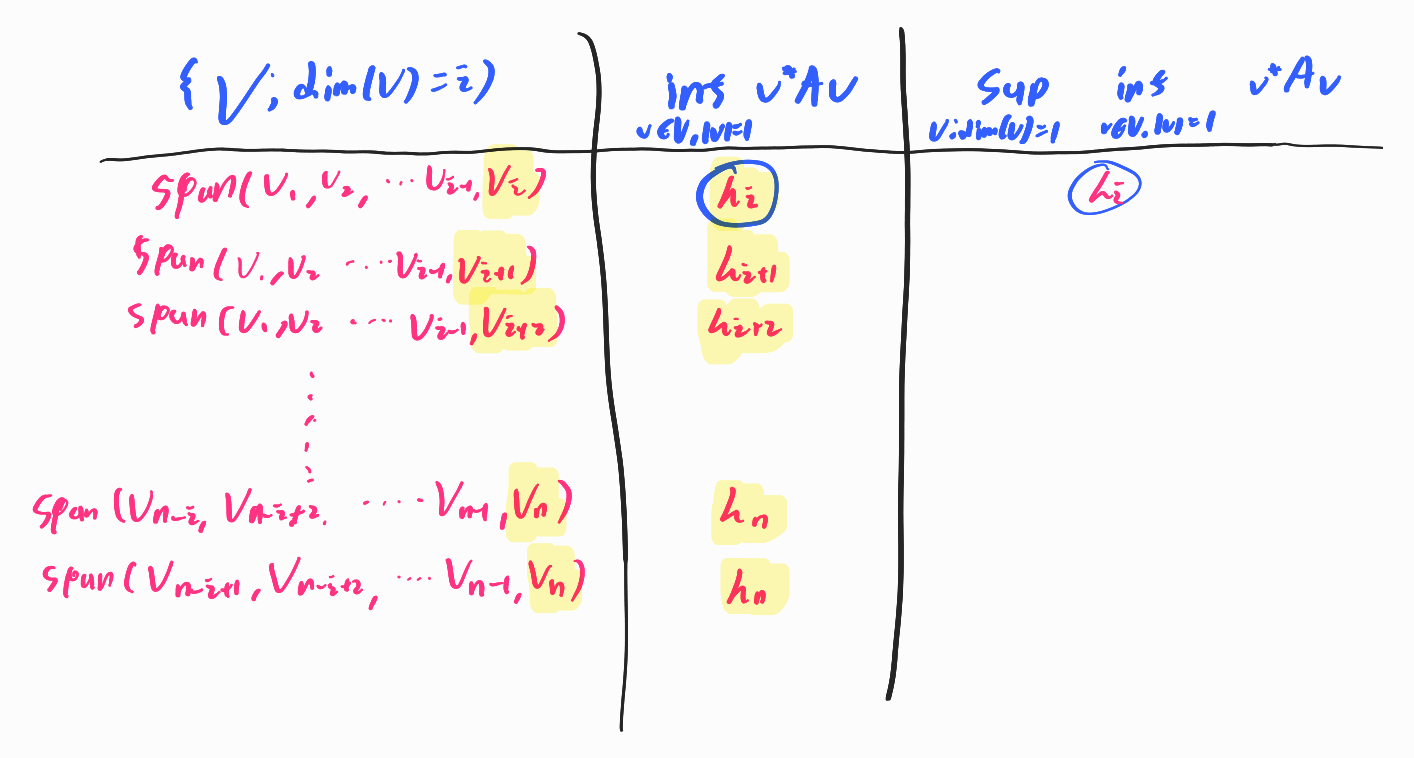 { V; dim(V) = i } inf v*Av Sup inf v*Av
v∈V, |v|=1 V:dim(V)=1 v∈V, |v|=1
span(v₁, v₂, ⋯ vᵢ₋₁, vᵢ) hᵢ hᵢ
span(v₁, v₂ ⋯ vᵢ₋₁, vᵢ₊₁) hᵢ₊₁
span(v₁, v₂ ⋯ vᵢ₋₁, vᵢ₊₂) hᵢ₊₂
⋮
span(vₙ₋ᵢ, vₙ₋ᵢ₊₂, ⋯ vₙ₋₁, vₙ) hₙ
span(vₙ₋ᵢ₊₁, vₙ₋ᵢ₊₂, ⋯ vₙ₋₁, vₙ) hₙ